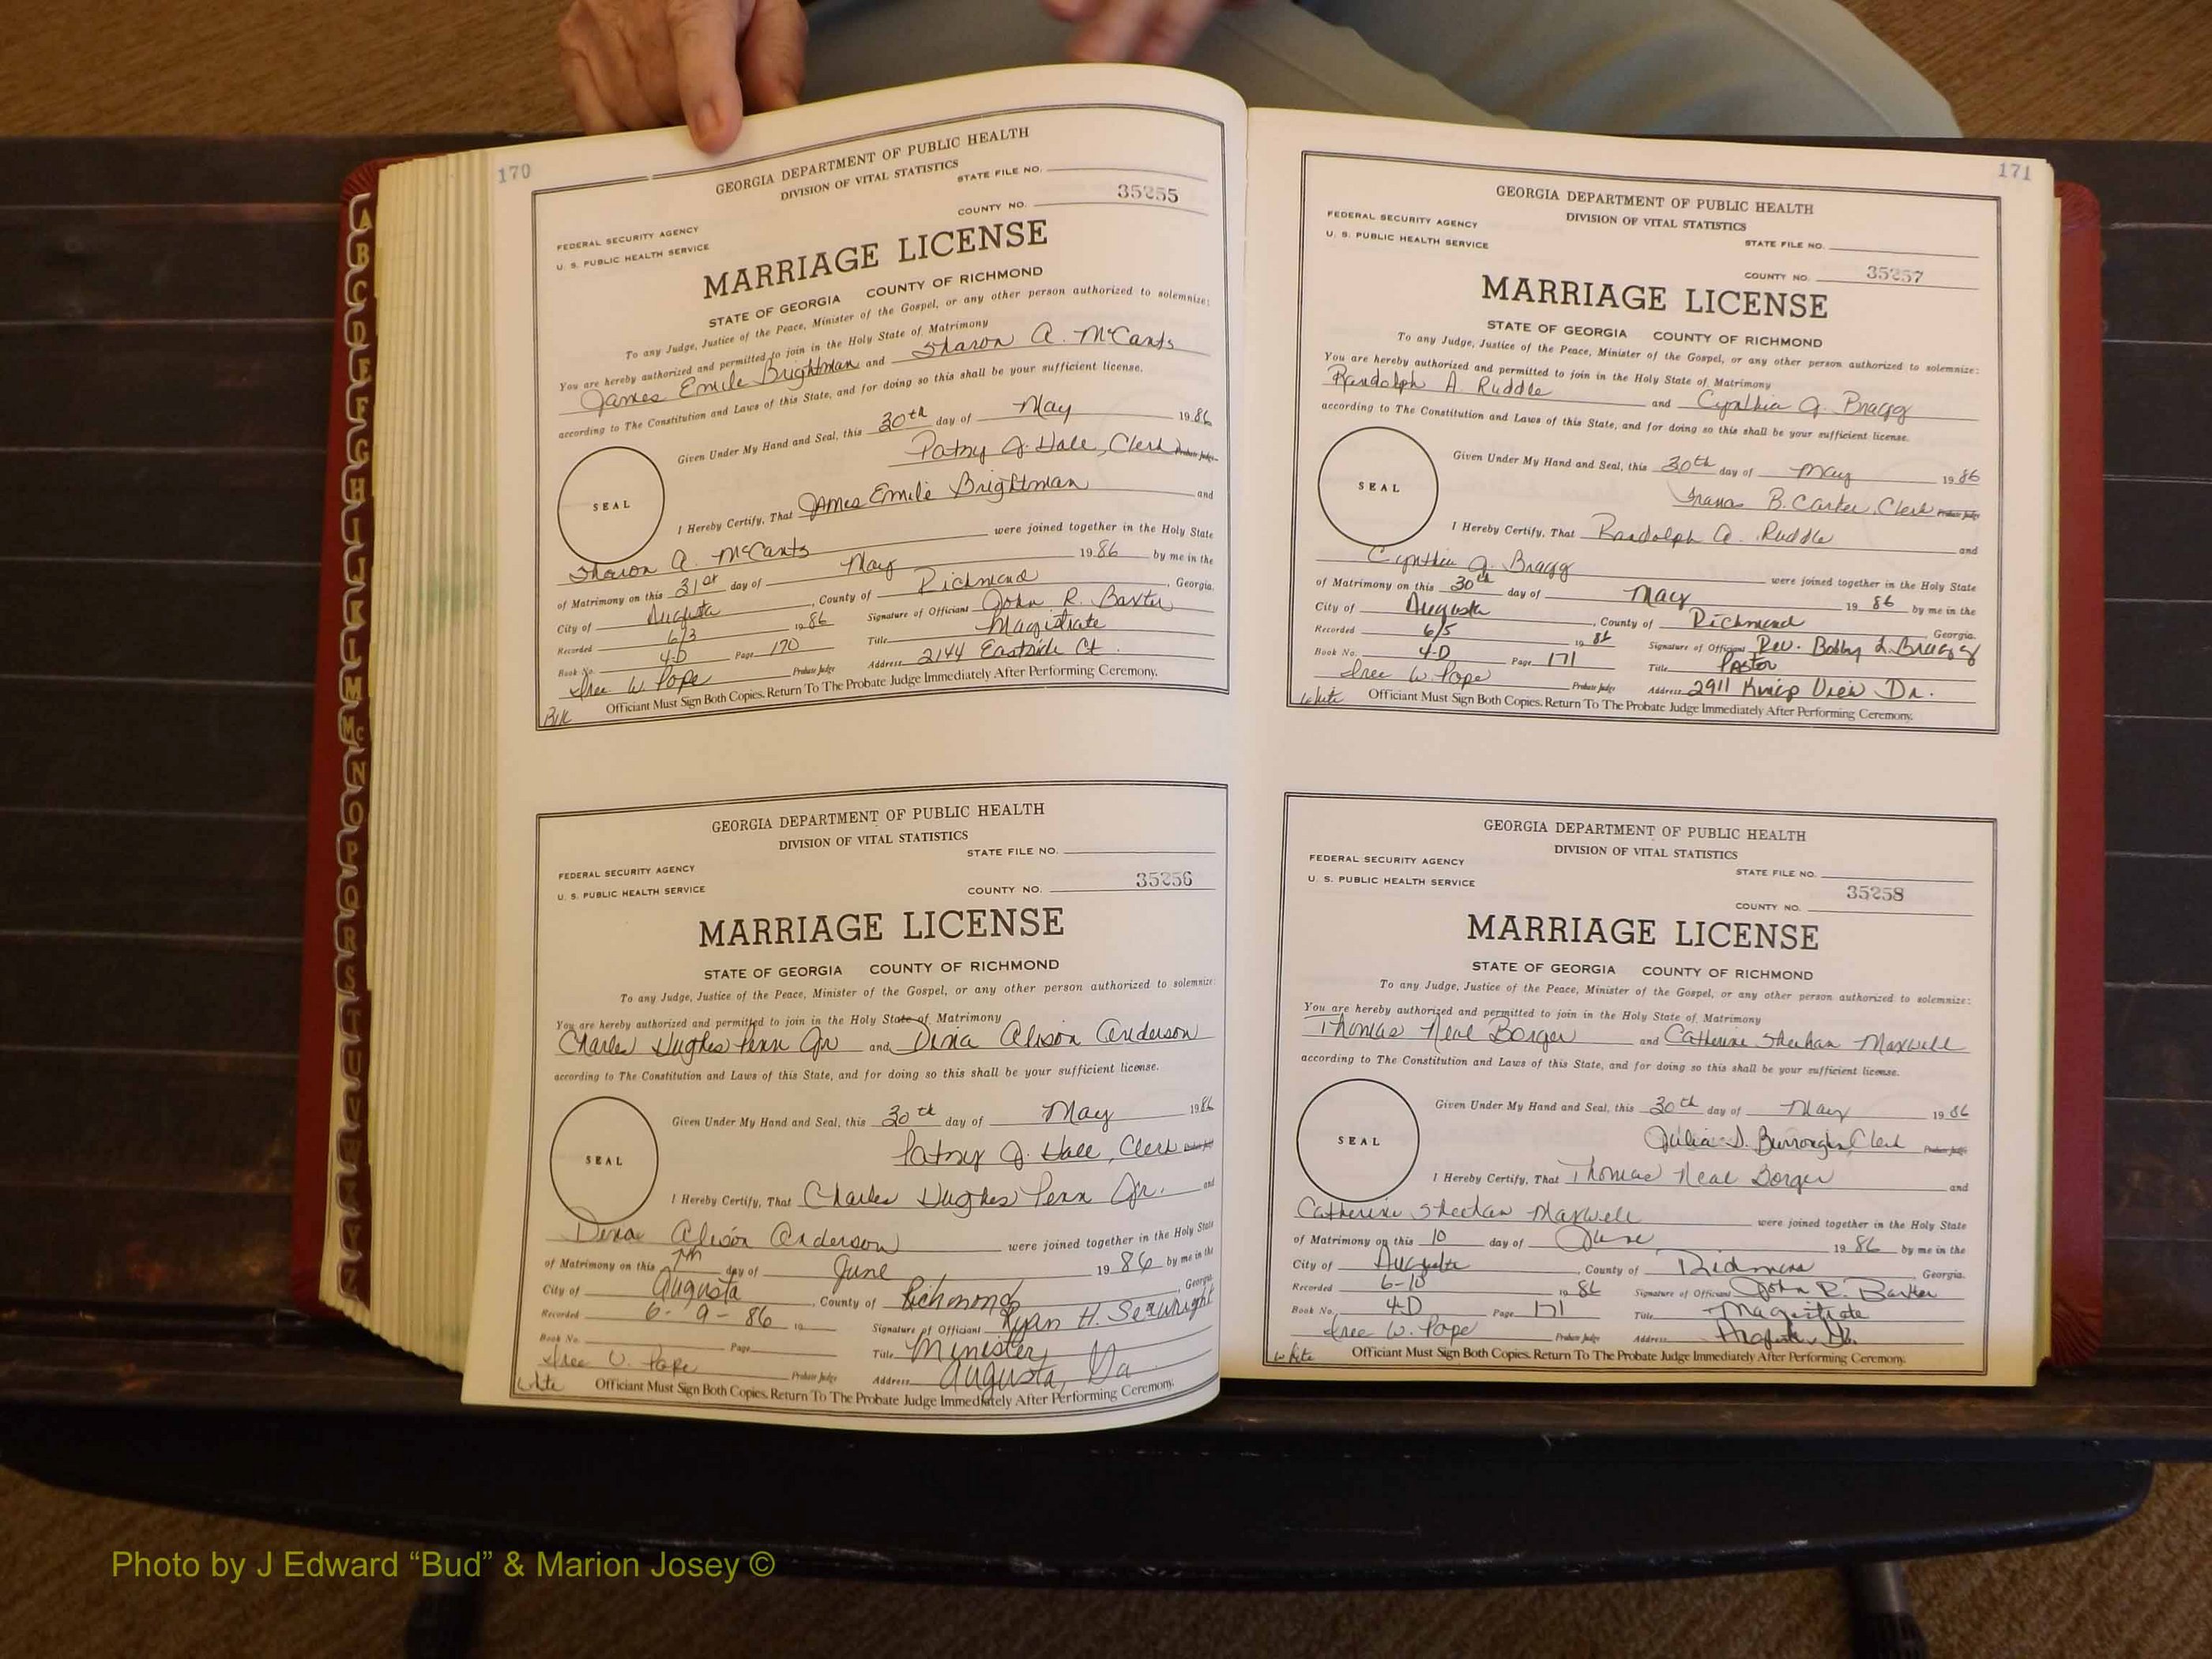 170
GEORGIA DEPARTMENT OF PUBLIC HEALTH
DIVISION OF VITAL STATISTICS
STATE FILE NO.
35255
COUNTY NO.
FEDERAL SECURITY AGENCY
U. S. PUBLIC HEALTH SERVICE
MARRIAGE LICENSE
STATE OF GEORGIA COUNTY OF RICHMOND
To any Judge, Justice of the Peace, Minister of the Gospel, or any other person authorized to solemnize:
You are hereby authorized and permitted to join in the Holy State of Matrimony
James Emile Brightman and Sharon A. McCants
according to The Constitution and Laws of this State, and for doing so this shall be your sufficient license.
Given Under My Hand and Seal, this 30th day of May 1986
Patsy J. Hall, Clerk Probate Judge
SEAL
I Hereby Certify, That James Emile Brightman and
Sharon A. McCants were joined together in the Holy State
of Matrimony on this 31st day of May 1986 by me in the
City of Augusta, County of Richmond, Georgia.
Recorded 6/3 1986 Signature of Officiant John R. Baxter
Book No. 4-D Page 170 Title Magistrate
Probate Judge Address 2144 Eastside Ct.
W. Pope
Officiant Must Sign Both Copies. Return To The Probate Judge Immediately After Performing Ceremony.
Blk
GEORGIA DEPARTMENT OF PUBLIC HEALTH
DIVISION OF VITAL STATISTICS
STATE FILE NO.
FEDERAL SECURITY AGENCY
U. S. PUBLIC HEALTH SERVICE
COUNTY NO. 35256
MARRIAGE LICENSE
STATE OF GEORGIA COUNTY OF RICHMOND
To any Judge, Justice of the Peace, Minister of the Gospel, or any other person authorized to solemnize:
You are hereby authorized and permitted to join in the Holy State of Matrimony
Charles Hughes Penn Jr and Dina Alison Anderson
according to The Constitution and Laws of this State, and for doing so this shall be your sufficient license.
Given Under My Hand and Seal, this 30th day of May 1986
Patsy J. Hall, Clerk Probate Judge
SEAL
I Hereby Certify, That Charles Hughes Penn Jr. and
Dina Alison Anderson were joined together in the Holy State
of Matrimony on this 7th day of June 1986 by me in the
City of Augusta, County of Richmond, Georgia.
Recorded 6-9-86 19 Signature of Officiant Ryan H. Seawright
Book No. Page Title Minister
W. Pope Probate Judge Address Augusta, Ga
White
Officiant Must Sign Both Copies. Return To The Probate Judge Immediately After Performing Ceremony.
171
GEORGIA DEPARTMENT OF PUBLIC HEALTH
DIVISION OF VITAL STATISTICS
FEDERAL SECURITY AGENCY
U. S. PUBLIC HEALTH SERVICE
STATE FILE NO.
COUNTY NO. 35257
MARRIAGE LICENSE
STATE OF GEORGIA COUNTY OF RICHMOND
To any Judge, Justice of the Peace, Minister of the Gospel, or any other person authorized to solemnize:
You are hereby authorized and permitted to join in the Holy State of Matrimony
Randolph A. Ruddle and Cynthia J. Bragg
according to The Constitution and Laws of this State, and for doing so this shall be your sufficient license.
Given Under My Hand and Seal, this 30th day of May 1986
B. Carter, Clerk Probate Judge
SEAL
I Hereby Certify, That Randolph A. Ruddle and
Cynthia J. Bragg were joined together in the Holy State
of Matrimony on this 30th day of May 1986 by me in the
City of Augusta, County of Richmond Georgia.
Recorded 6/5 1986 Signature of Officiant Rev. Bobby L. Bragg
Book No. 4-D Page 171 Title Pastor
W. Pope Probate Judge Address 2911 View Dr.
White
Officiant Must Sign Both Copies. Return To The Probate Judge Immediately After Performing Ceremony.
GEORGIA DEPARTMENT OF PUBLIC HEALTH
DIVISION OF VITAL STATISTICS
FEDERAL SECURITY AGENCY
U. S. PUBLIC HEALTH SERVICE
STATE FILE NO.
35258
COUNTY NO.
MARRIAGE LICENSE
STATE OF GEORGIA COUNTY OF RICHMOND
To any Judge, Justice of the Peace, Minister of the Gospel, or any other person authorized to solemnize:
You are hereby authorized and permitted to join in the Holy State of Matrimony
Thomas Neal Borger and Catherine Sheehan Maxwell
according to The Constitution and Laws of this State, and for doing so this shall be your sufficient license.
Given Under My Hand and Seal, this 30th day of May 1986
Julia D. Burroughs, Clerk Probate Judge
SEAL
I Hereby Certify, That Thomas Neal Borger and
Catherine Sheehan Maxwell were joined together in the Holy State
of Matrimony on this 10 day of June 1986 by me in the
City of Augusta, County of Richmond Georgia.
Recorded 6-10 1986 Signature of Officiant John R. Baxter
Book No. 4-D Page 171 Title Magistrate
W. Pope Probate Judge Address Augusta Ga.
White
Officiant Must Sign Both Copies. Return To The Probate Judge Immediately After Performing Ceremony.
A
B
C
D
E
F
G
H
I
J
K
L
M
Mc
N
O
P
Q
R
S
T
U
V
W
X
Y
Z
Photo by J Edward “Bud” & Marion Josey ©